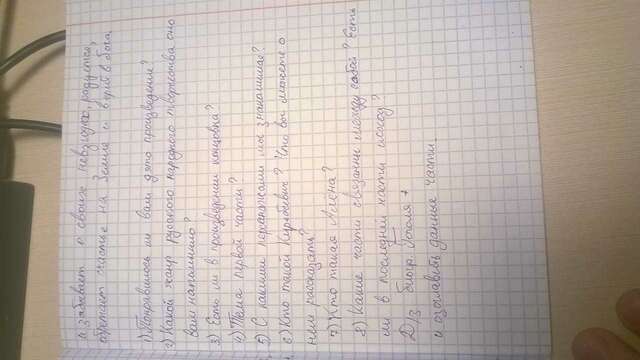 и забывает о своих невзгодах, радуется,
обретает счастье на Земле и верит в бога.
1) Понравилось ли вам это произведение?
2) Какой жанр русского народного творчества оно
вам напомнило?
3) Есть ли в произведении концовка?
4) Тема первой части?
5) С какими персонажами мы знакомимся?
6) Кто такой Кирибеевич? Что вы можете о
нём рассказать?
7) Кто такая Алёна?
8) Какие части связаны между собой? Есть
ли в последней части исход?
Д/з биогр. Гоголя +
и озаглавить данные части.